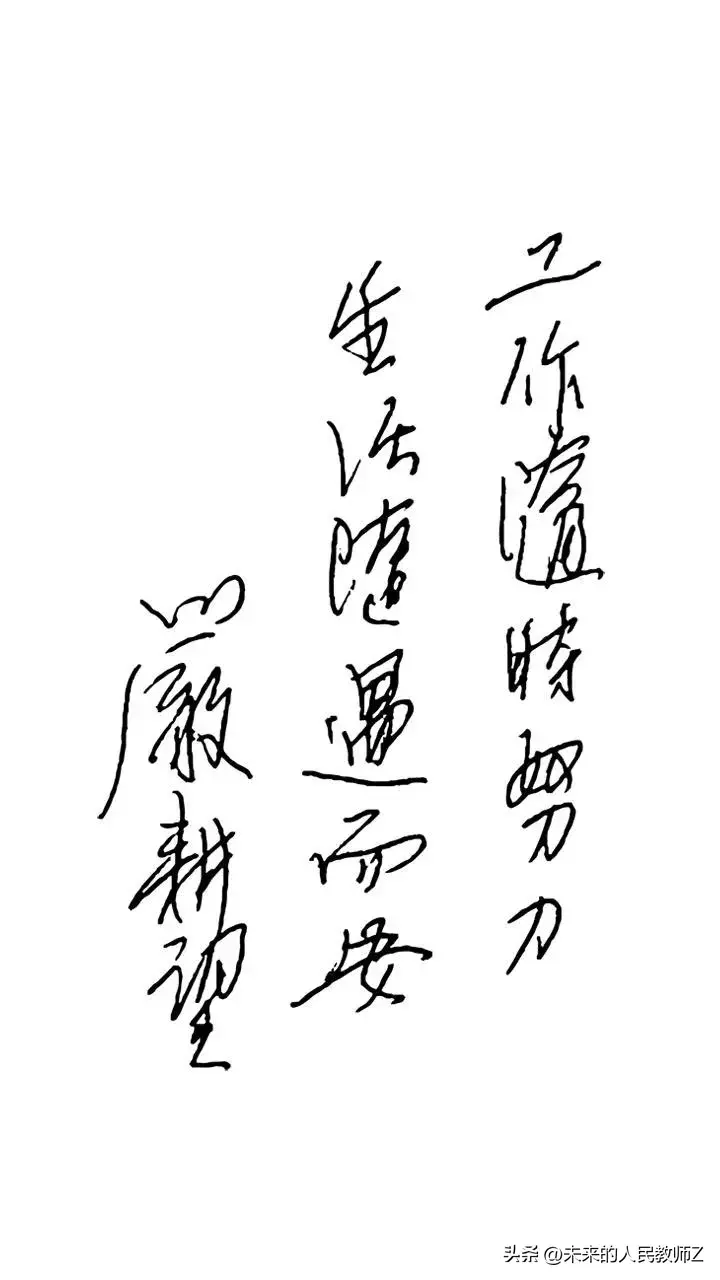 工作隨時努力
生活隨遇而安
嚴耕望
头条 @未来的人民教师Z